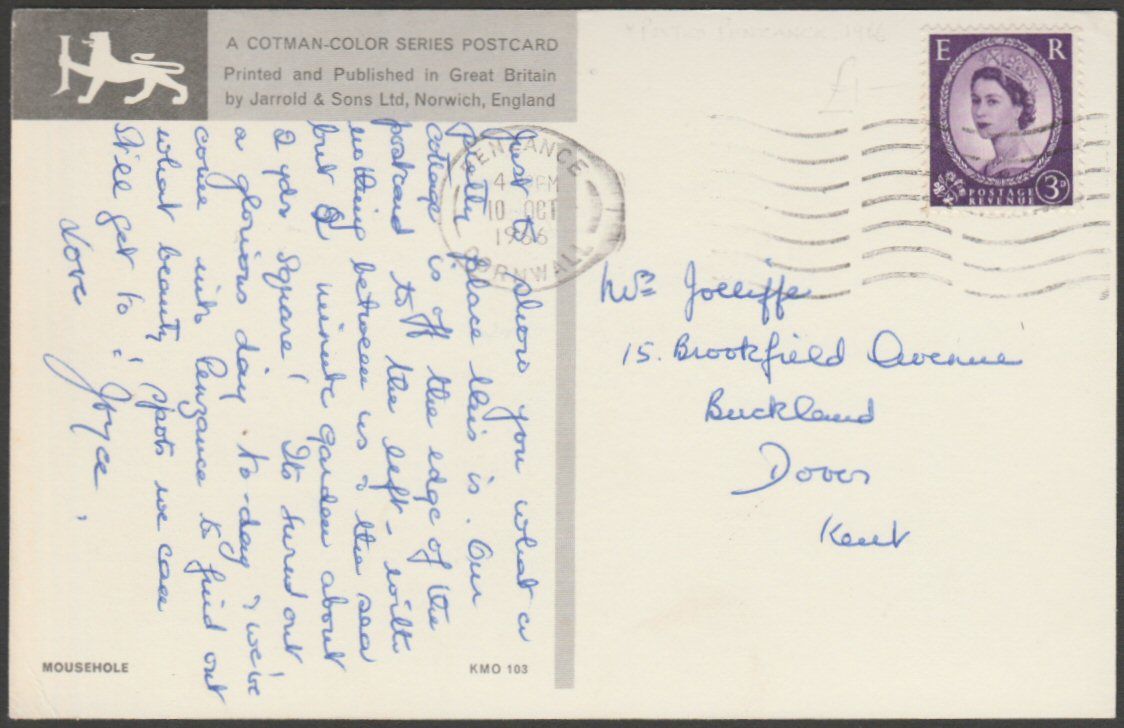 A COTMAN-COLOR SERIES POSTCARD
Printed and Published in Great Britain
by Jarrold & Sons Ltd, Norwich, England
Just to show you what a
Pretty place this is. Our
cottage is off the edge of the
postcard to the left - with
nothing between us & the sea
but a minute garden about
2 yds square! Its turned out
a glorious day to-day & we've
come into Penzance to find out
what beauty spots we can
still get to!
Love Joyce.
MOUSEHOLE
KMO 103
PENZANCE
4 PM
10 OCT
1966
CORNWALL
E R
POSTAGE
REVENUE
3D
£1-
Mrs Jolliffe
15. Brookfield Avenue
Buckland
Dover
Kent